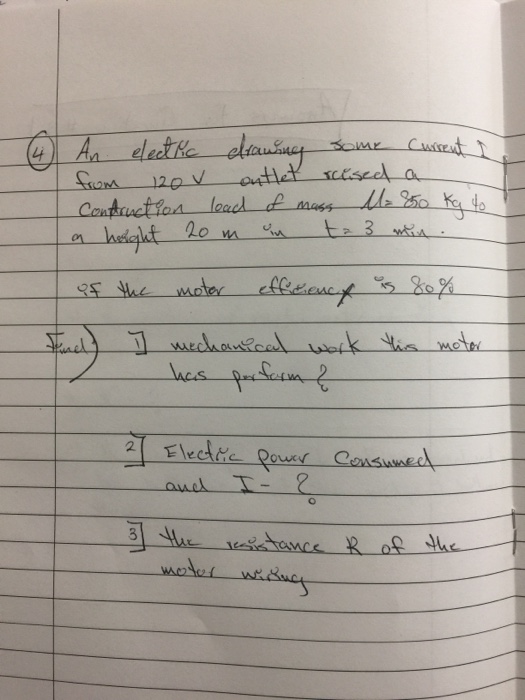 4 An electric drawing some Current I
from 120 V outlet reised a
Contruction load of mass M= 850 Kg to
a height 20 m in t= 3 min.
If the motor efficiency is 80%
Find) 1] mechanical work this motor
has perform?
2] Electric power Consumed
and I- ?
3] the resistance R of the
motor wiring